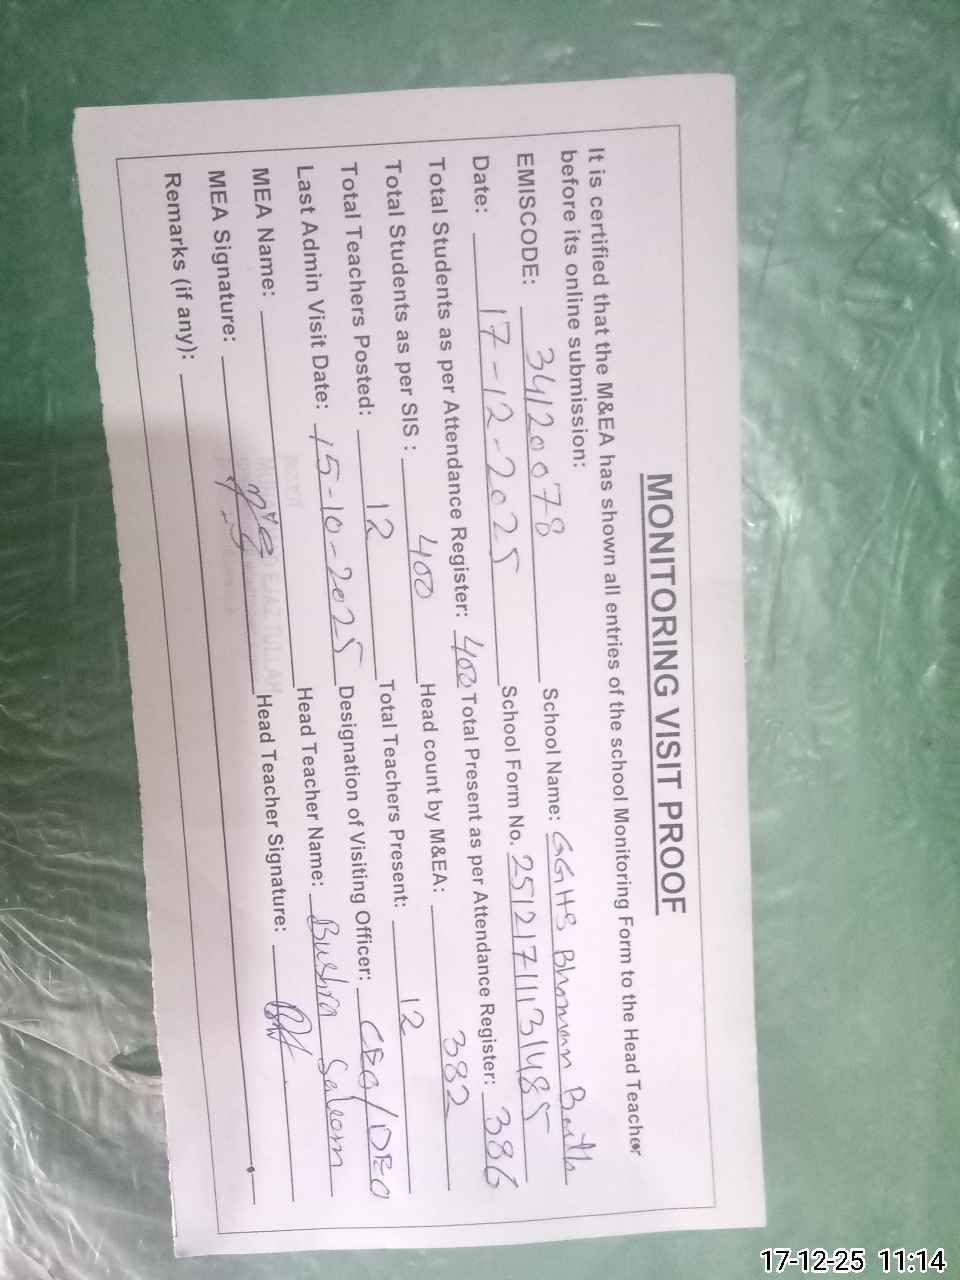 MONITORING VISIT PROOF
It is certified that the M&EA has shown all entries of the school Monitoring Form to the Head Teacher
before its online submission:
EMISCODE: 34120078 School Name: GGHS Bhoman Barth
Date: 17-12-2025 School Form No. 25121711131485
Total Students as per Attendance Register: 400 Total Present as per Attendance Register: 386
Total Students as per SIS : 400 Head count by M&EA: 382
Total Teachers Posted: 12 Total Teachers Present: 12
Last Admin Visit Date: 15-10-2025 Designation of Visiting Officer: CEO/DEO
MEA Name: Head Teacher Name: Bushra Saleem
MEA Signature: Head Teacher Signature:
Remarks (if any):
17-12-25 11:14